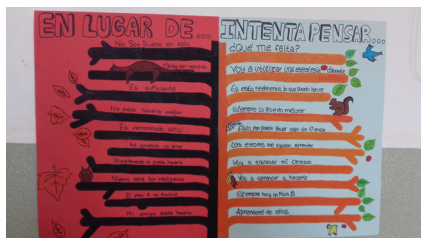 EN LUGAR DE...
No Soy Bueno en esto
Me doy por vencido
Es suficiente
No puedo hacerlo mejor
Es demasiado difícil
He cometido un error
Simplemente no puedo hacerlo
Nunca seré tan inteligente
El plan A no funcionó
Mi amigo puede hacerlo
INTENTA PENSAR...
¿Qué me falta?
Voy a utilizar una estrategia diferente
Es esto realmente lo que puedo hacer
Siempre lo puedo mejorar
Esto me puede llevar algo de tiempo
Los errores me ayudan aprender
Voy a entrenar mi cerebro
Voy a aprender a hacerlo
Siempre hay un Plan B
Aprenderé de ellos